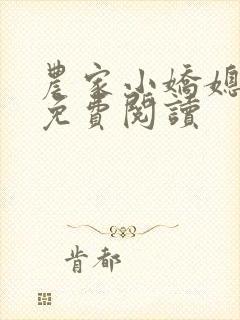 農家小嬌媳
免費閱讀
肯都